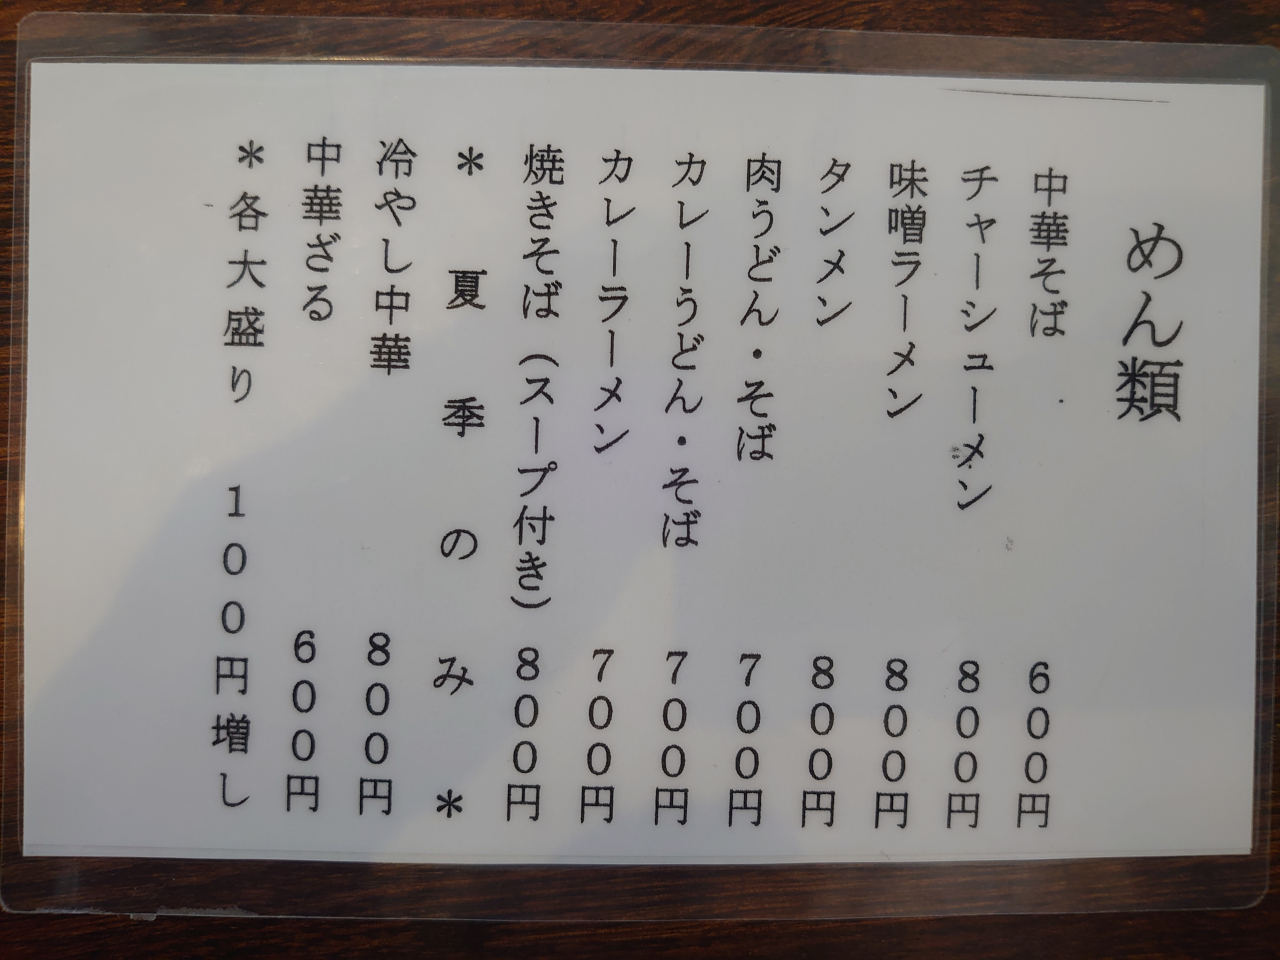 めん類
中華そば　６００円
チャーシューメン　８００円
味噌ラーメン　８００円
タンメン　８００円
肉うどん・そば　７００円
カレーうどん・そば　７００円
カレーラーメン　７００円
焼きそば（スープ付き）８００円
＊夏季のみ＊
冷やし中華　８００円
中華ざる　６００円
＊各大盛り　１００円増し